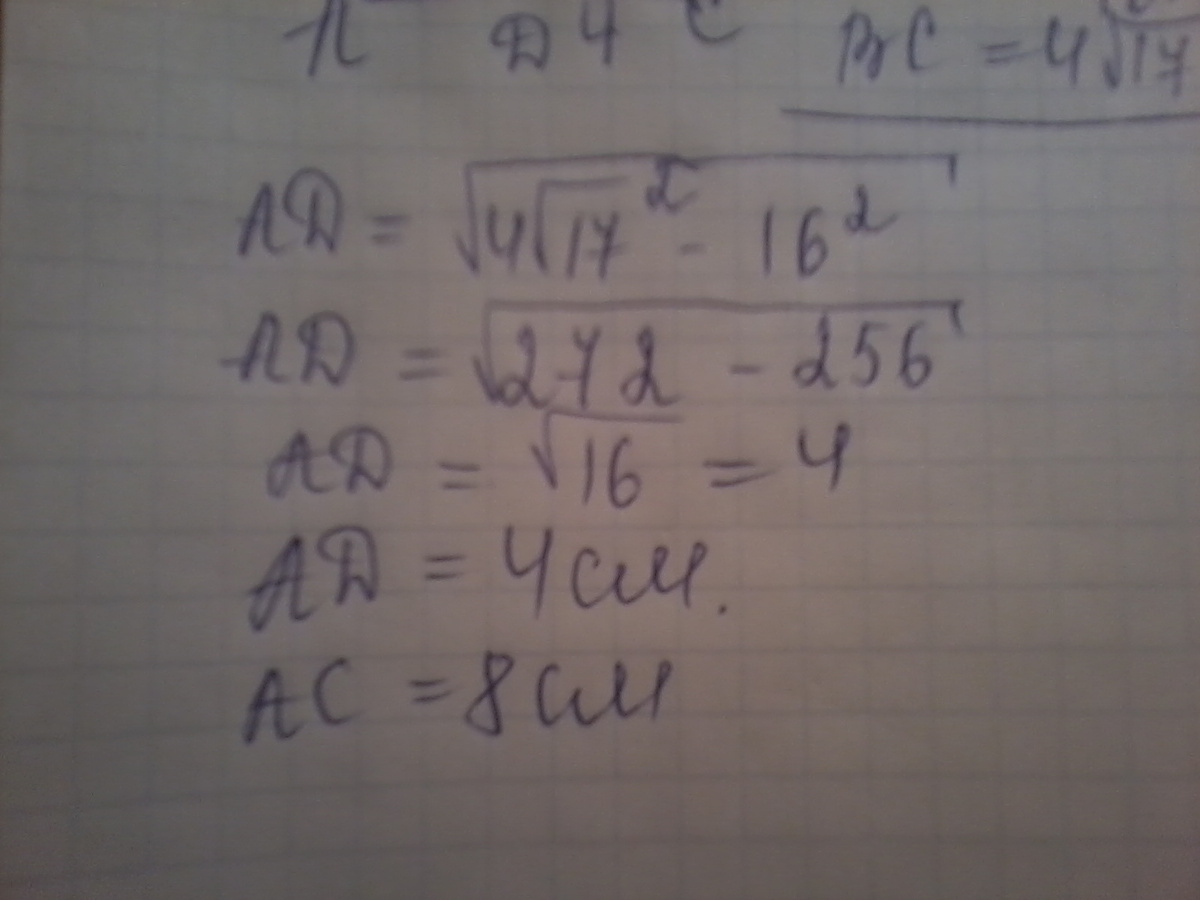 A D 4 C
BC = 4√17
AD = √4√17² - 16²
AD = √272 - 256
AD = √16 = 4
AD = 4 см.
AC = 8 см